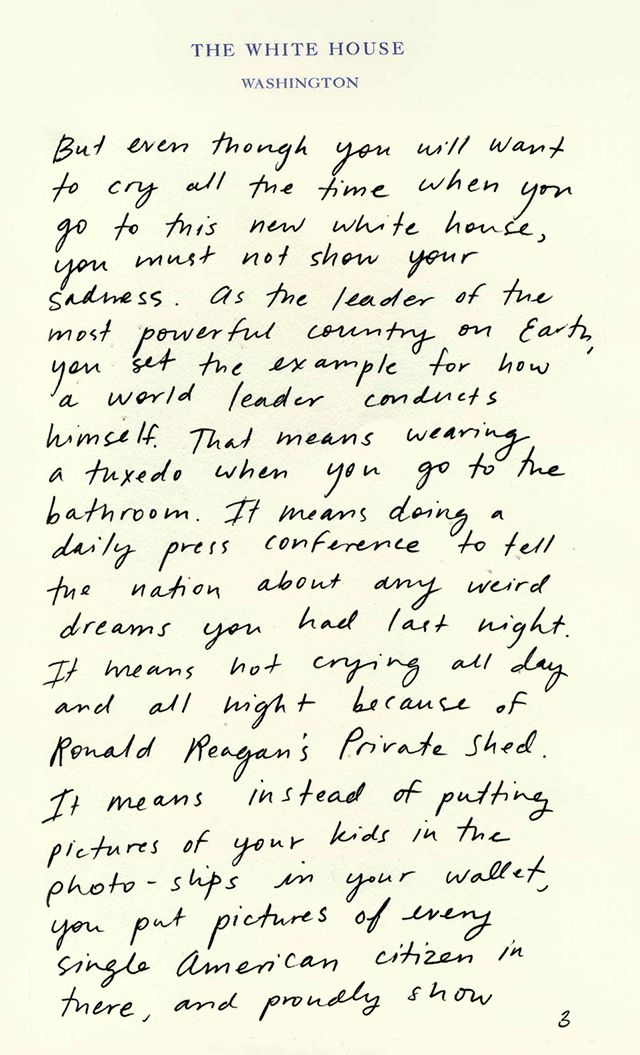 THE WHITE HOUSE
WASHINGTON
But even though you will want
to cry all the time when you
go to this new white house,
you must not show your
sadness. As the leader of the
most powerful country on Earth,
you set the example for how
a world leader conducts
himself. That means wearing
a tuxedo when you go to the
bathroom. It means doing a
daily press conference to tell
the nation about any weird
dreams you had last night.
It means not crying all day
and all night because of
Ronald Reagan's Private Shed.
It means instead of putting
pictures of your kids in the
photo-slips in your wallet,
you put pictures of every
single American citizen in
there, and proudly show
3